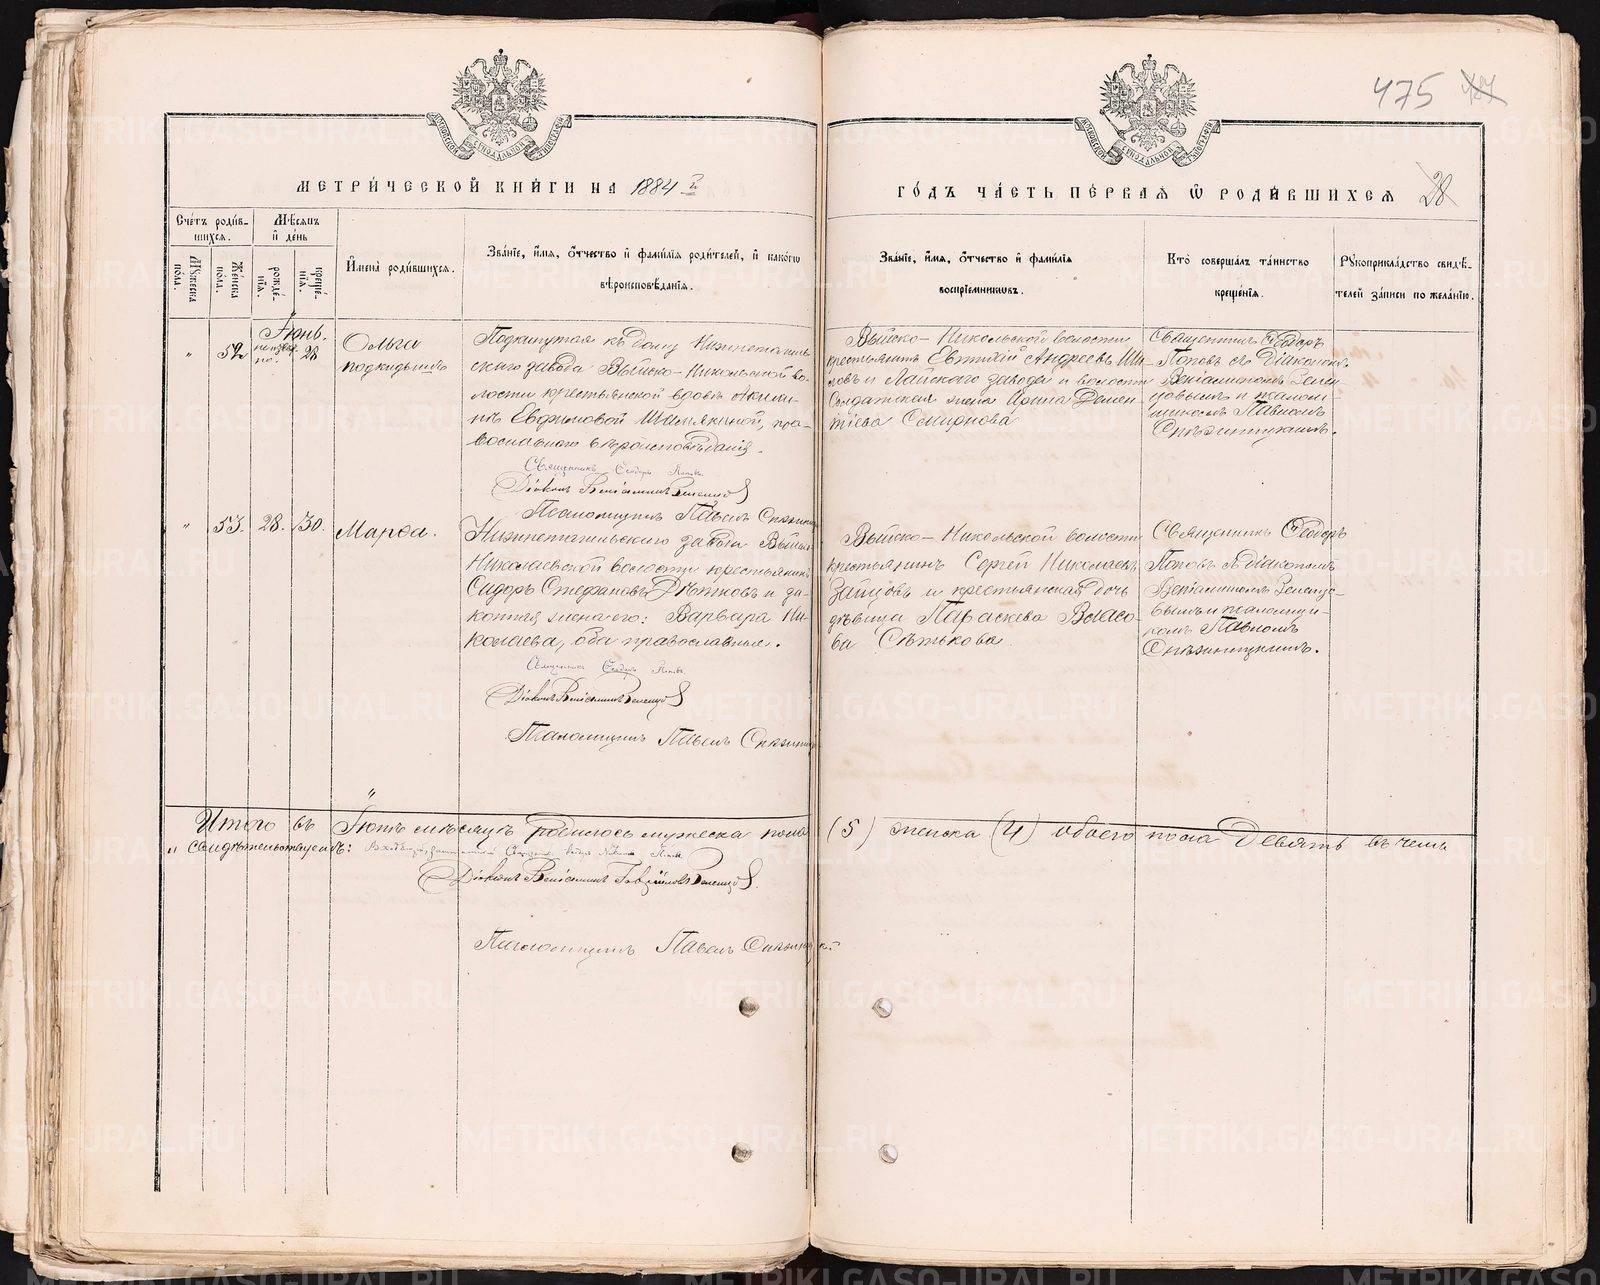 475
МЕТРИЧЕСКОЙ КНИГИ НА 1884 й
ГОДЪ ЧАСТЬ ПЕРВАЯ Ѡ РОДИВШИХСЯ 28
Счетъ родив-
шихся.
Мѣсяцъ
и день
Мужеска
пола.
Женска
пола.
рожде-
нія.
креще-
нія.
Имена родившихся.
Званіе, имя, отчество и фамилія родителей, и какого
вѣроисповѣданія.
Званіе, имя, отчество и фамилія
воспріемниковъ.
Кто совершалъ таинство
крещенія.
Рукоприкладство свидѣ-
телей записи по желанію.
Іюнь.
" 52 28
Ольга
подкидышъ
Подкинутая къ дому Нижнетагиль
скаго завода Выйско-Никольской во-
лости крестьянской вдовѣ Акили-
нѣ Евфимовой Шимякиной, пра-
вославнаго вѣроисповѣданія.
Священникъ Ѳеодоръ Поповъ
Діаконъ Веніаминъ Зеленцовъ
Псаломщикъ Павелъ
Выйско-Никольской волости
крестьянинъ Евтихій Андреевъ Ши-
ловъ и Лайскаго завода и волости
Солдатская жена Ирина Демен
тіева Смирнова
Священникъ Ѳеодоръ
Поповъ съ Діакономъ
Веніаминомъ Зелен-
цовымъ и псалом
щикомъ Павломъ
" 53. 28. 30. Марѳа.
Нижнетагильскаго завода Выйско
Николаевской волости крестьянинъ
Сидоръ Стефановъ Рѣтновъ и за-
конная жена его: Варвара Ни-
колаева, оба православные.
Священникъ Ѳеодоръ Поповъ
Діаконъ Веніаминъ Зеленцовъ
Псаломщикъ Павелъ
Выйско-Никольской волости
крестьянинъ Сергей Николаевъ
Зайцовъ и крестьянская дочь
дѣвица Параскева Власо-
ва Сѣтькова
Священникъ Ѳеодоръ
Поповъ съ Діакономъ
Веніаминомъ Зеленцо-
вымъ и псаломщи-
комъ Павломъ
Итого въ Іюнѣ мѣсяцѣ родилось мужеска пола (5) женска (4) обоего пола Девять въ чемъ
и свидѣтельствуемъ:
Діаконъ Веніаминъ Гавріиловъ Зеленцовъ.
Псаломщикъ Павелъ
METRIKI.GASO-URAL.RU